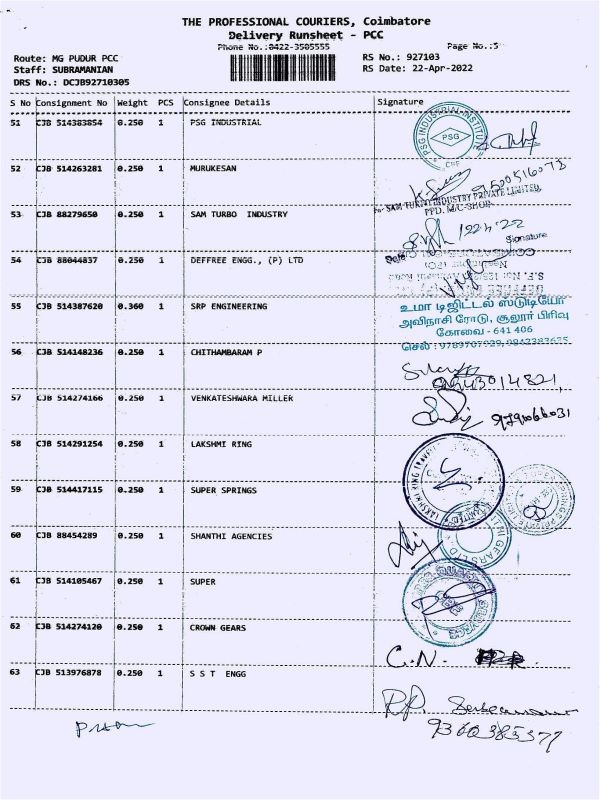 THE PROFESSIONAL COURIERS, Coimbatore
Delivery Runsheet - PCC
Phone No.:0422-3505555
Page No.:5
Route: MG PUDUR PCC
RS No.: 927103
Staff: SUBRAMANIAN
RS Date: 22-Apr-2022
DRS No.: DCJB92710305
S No Consignment No Weight PCS Consignee Details Signature
51 CJB 514383854 0.250 1 PSG INDUSTRIAL
PSG INDUSTRIAL INSTITUTE
PSG
52 CJB 514263281 0.250 1 MURUKESAN
SAM TURBO INDUSTRY PRIVATE LIMITED,
53 CJB 88279650 0.250 1 SAM TURBO INDUSTRY
Signature
54 CJB 88044837 0.250 1 DEFFREE ENGG., (P) LTD
55 CJB 514387620 0.360 1 SRP ENGINEERING
உமா டிஜிட்டல் ஸ்டுடியோ
அவிநாசி ரோடு, சூலூர் பிரிவு
கோவை - 641 406
செல் : 9789707929, 9842387675
56 CJB 514148236 0.250 1 CHITHAMBARAM P
57 CJB 514274166 0.250 1 VENKATESHWARA MILLER
9791066031
58 CJB 514291254 0.250 1 LAKSHMI RING
LAKSHMI RING
59 CJB 514417115 0.250 1 SUPER SPRINGS
60 CJB 88454289 0.250 1 SHANTHI AGENCIES
GEARS LTD
61 CJB 514105467 0.250 1 SUPER
62 CJB 514274120 0.250 1 CROWN GEARS
C.N.
63 CJB 513976878 0.250 1 S S T ENGG
9360385377